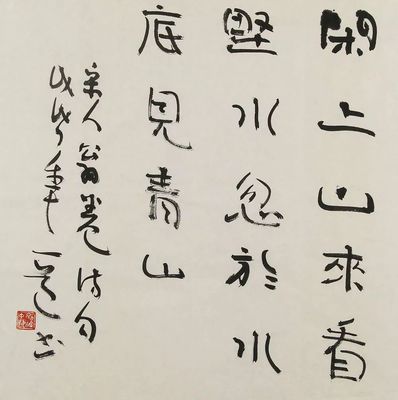 閑上山來看
野水忽於水
底見青山
宋人翁卷詩句
戊戌年一書